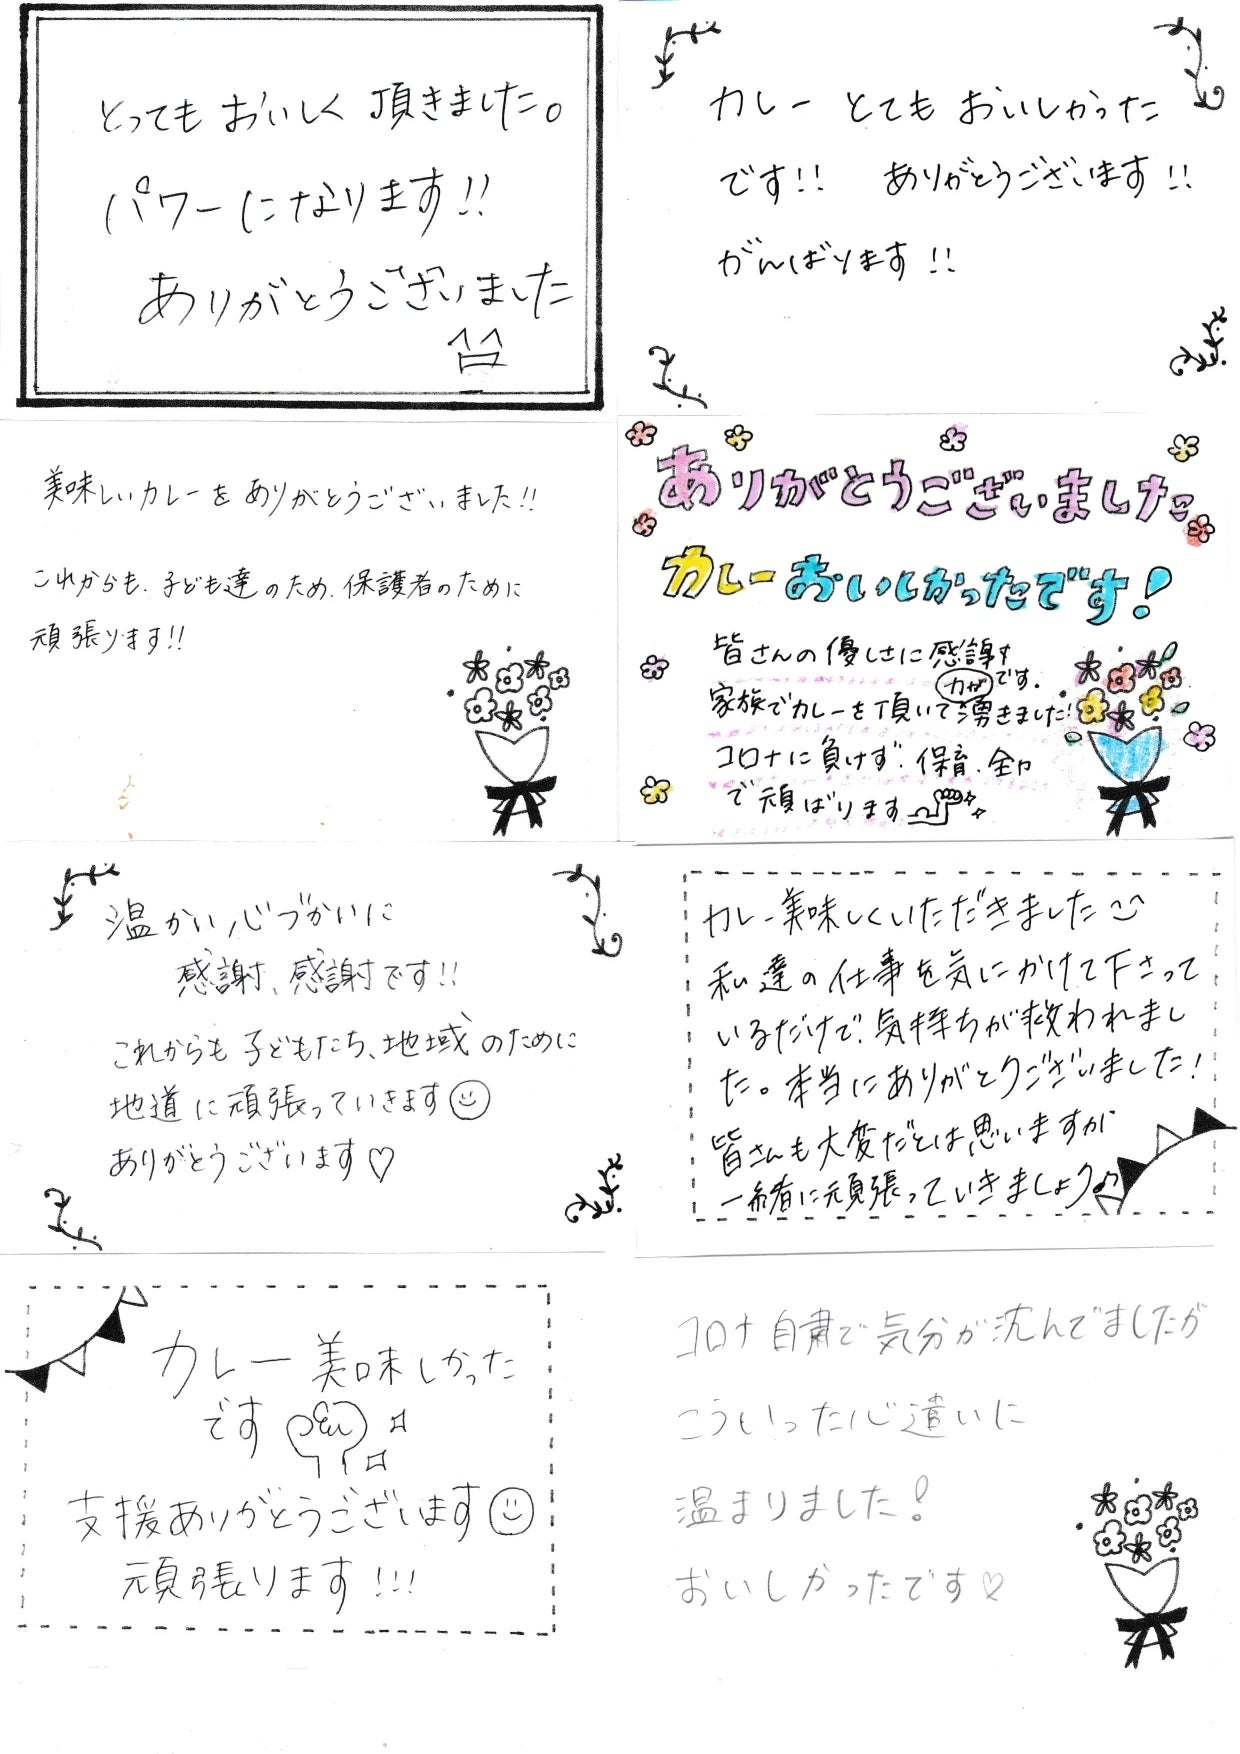 とっても おいしく 頂きました。
パワーになります!!
ありがとうございました
カレー とても おいしかった
です!! ありがとうございます!!
がんばります!!
美味しいカレーを ありがとうございました!!
これからも、子ども達のため、保護者のために
頑張ります!!
ありがとうございました
カレーおいしかったです!
皆さんの優しさに感謝
です。
家族でカレーを頂いて力が湧きました!
コロナに負けず、保育、全力
で頑ばります
温かい心づかいに
感謝、感謝です!!
これからも 子どもたち、地域のために
地道に頑張っていきます
ありがとうございます♡
カレー美味しくいただきました
私達の仕事を気にかけて下さって
いるだけで、気持ちが救われまし
た。本当にありがとうございました!
皆さんも大変だとは思いますが
一緒に頑張っていきましょう♪
カレー美味しかった
です
支援ありがとうございます
頑張ります!!!
コロナ自粛で気分が沈んでましたが
こういった心遣いに
温まりました!
おいしかったです♡